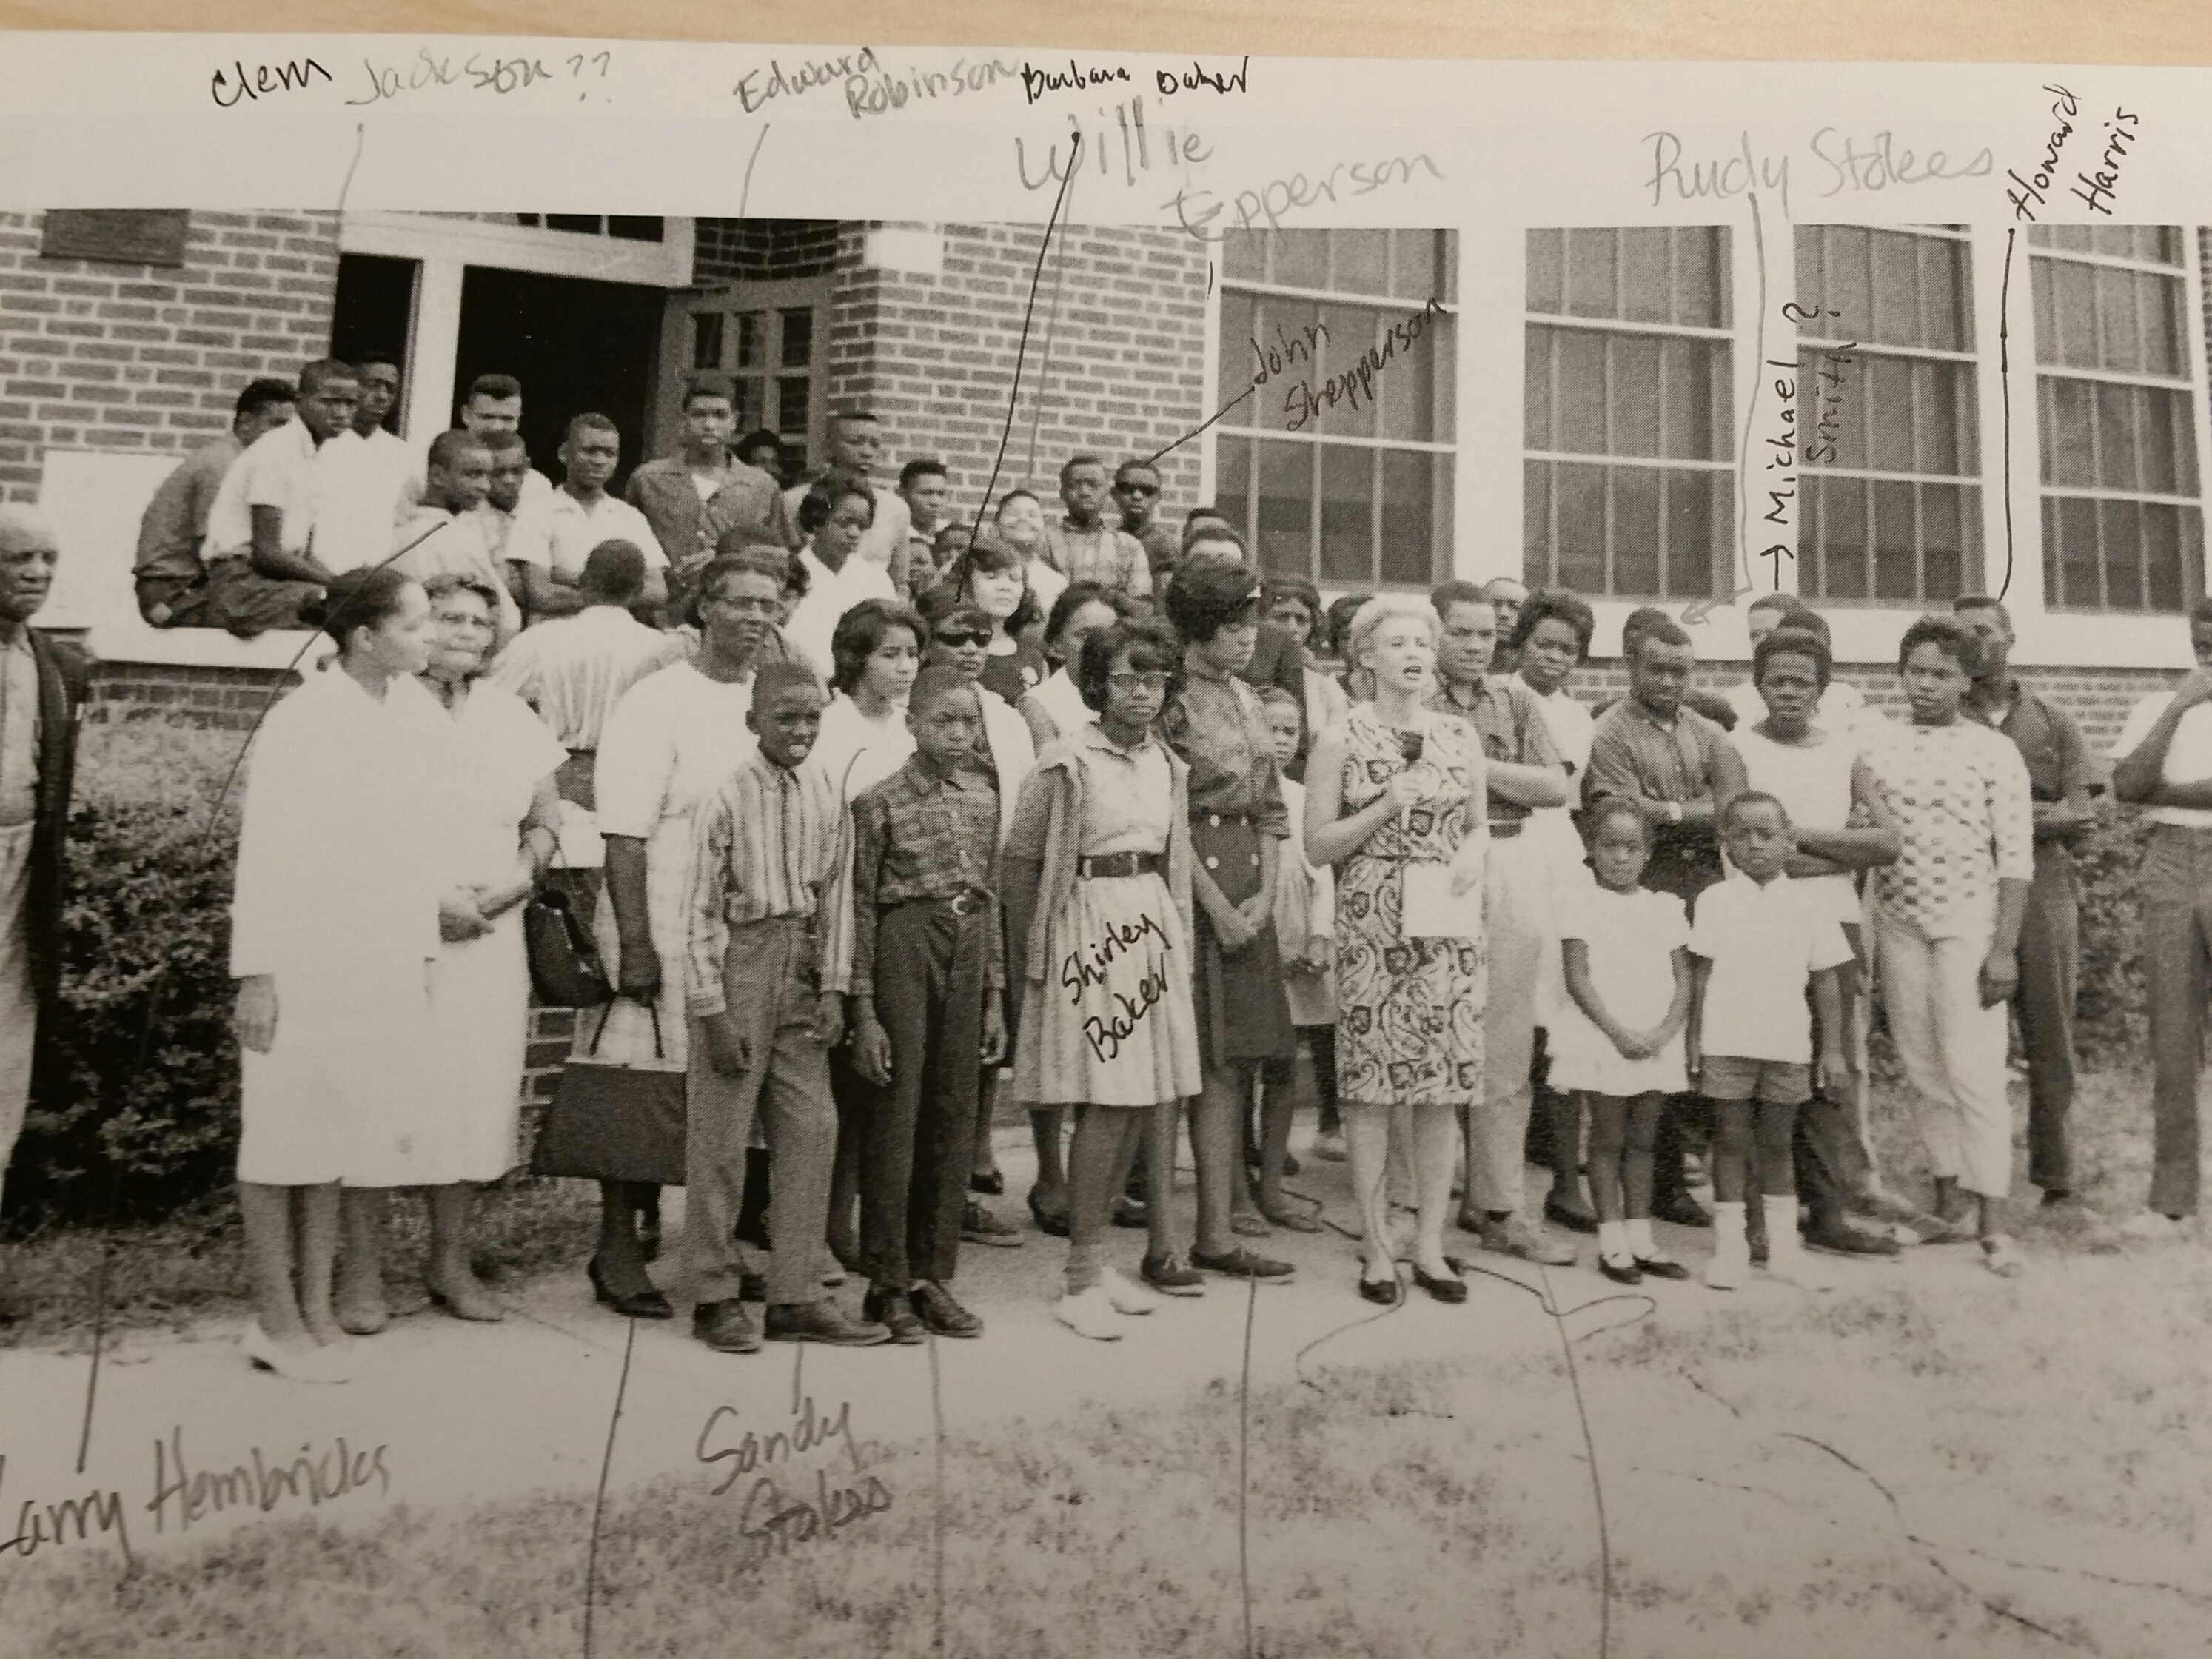 Clem Jackson??
Edward
Robinson
Barbara Baker
Willie
Epperson
Rudy Stokes
Howard
Harris
John
Shepperson
→ Michael ?
Smith?
Shirley
Baker
Larry Hembricks
Sandy
Stokes